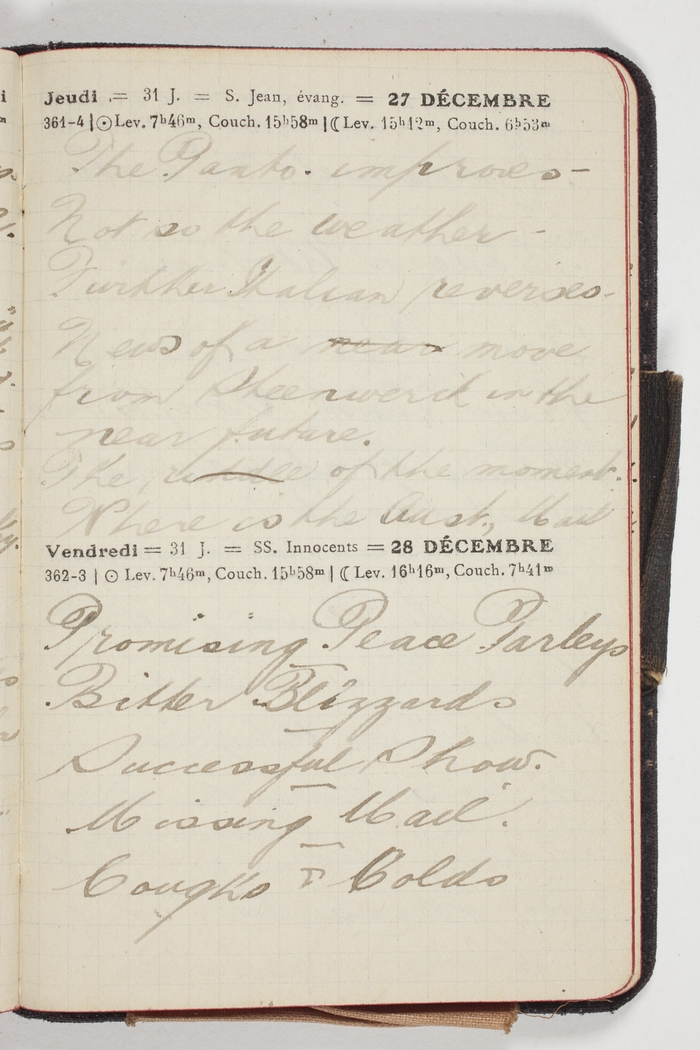 Jeudi = 31 J. = S. Jean, évang. = 27 DÉCEMBRE
361-4 | ☉ Lev. 7h46m, Couch. 15h58m | ☾ Lev. 15h12m, Couch. 6h53m
The Panto. improves -
Not so the weather -
Further Italian reverses -
News of a near move
from Steenwerck in the
near future.
The riddle of the moment.
Where is the Aust., Mail
Vendredi = 31 J. = SS. Innocents = 28 DÉCEMBRE
362-3 | ☉ Lev. 7h46m, Couch. 15h58m | ☾ Lev. 16h16m, Couch. 7h41m
Promising Peace Parleys
Bitter Blizzards
Successful Show.
Missing Mail.
Coughs & Colds